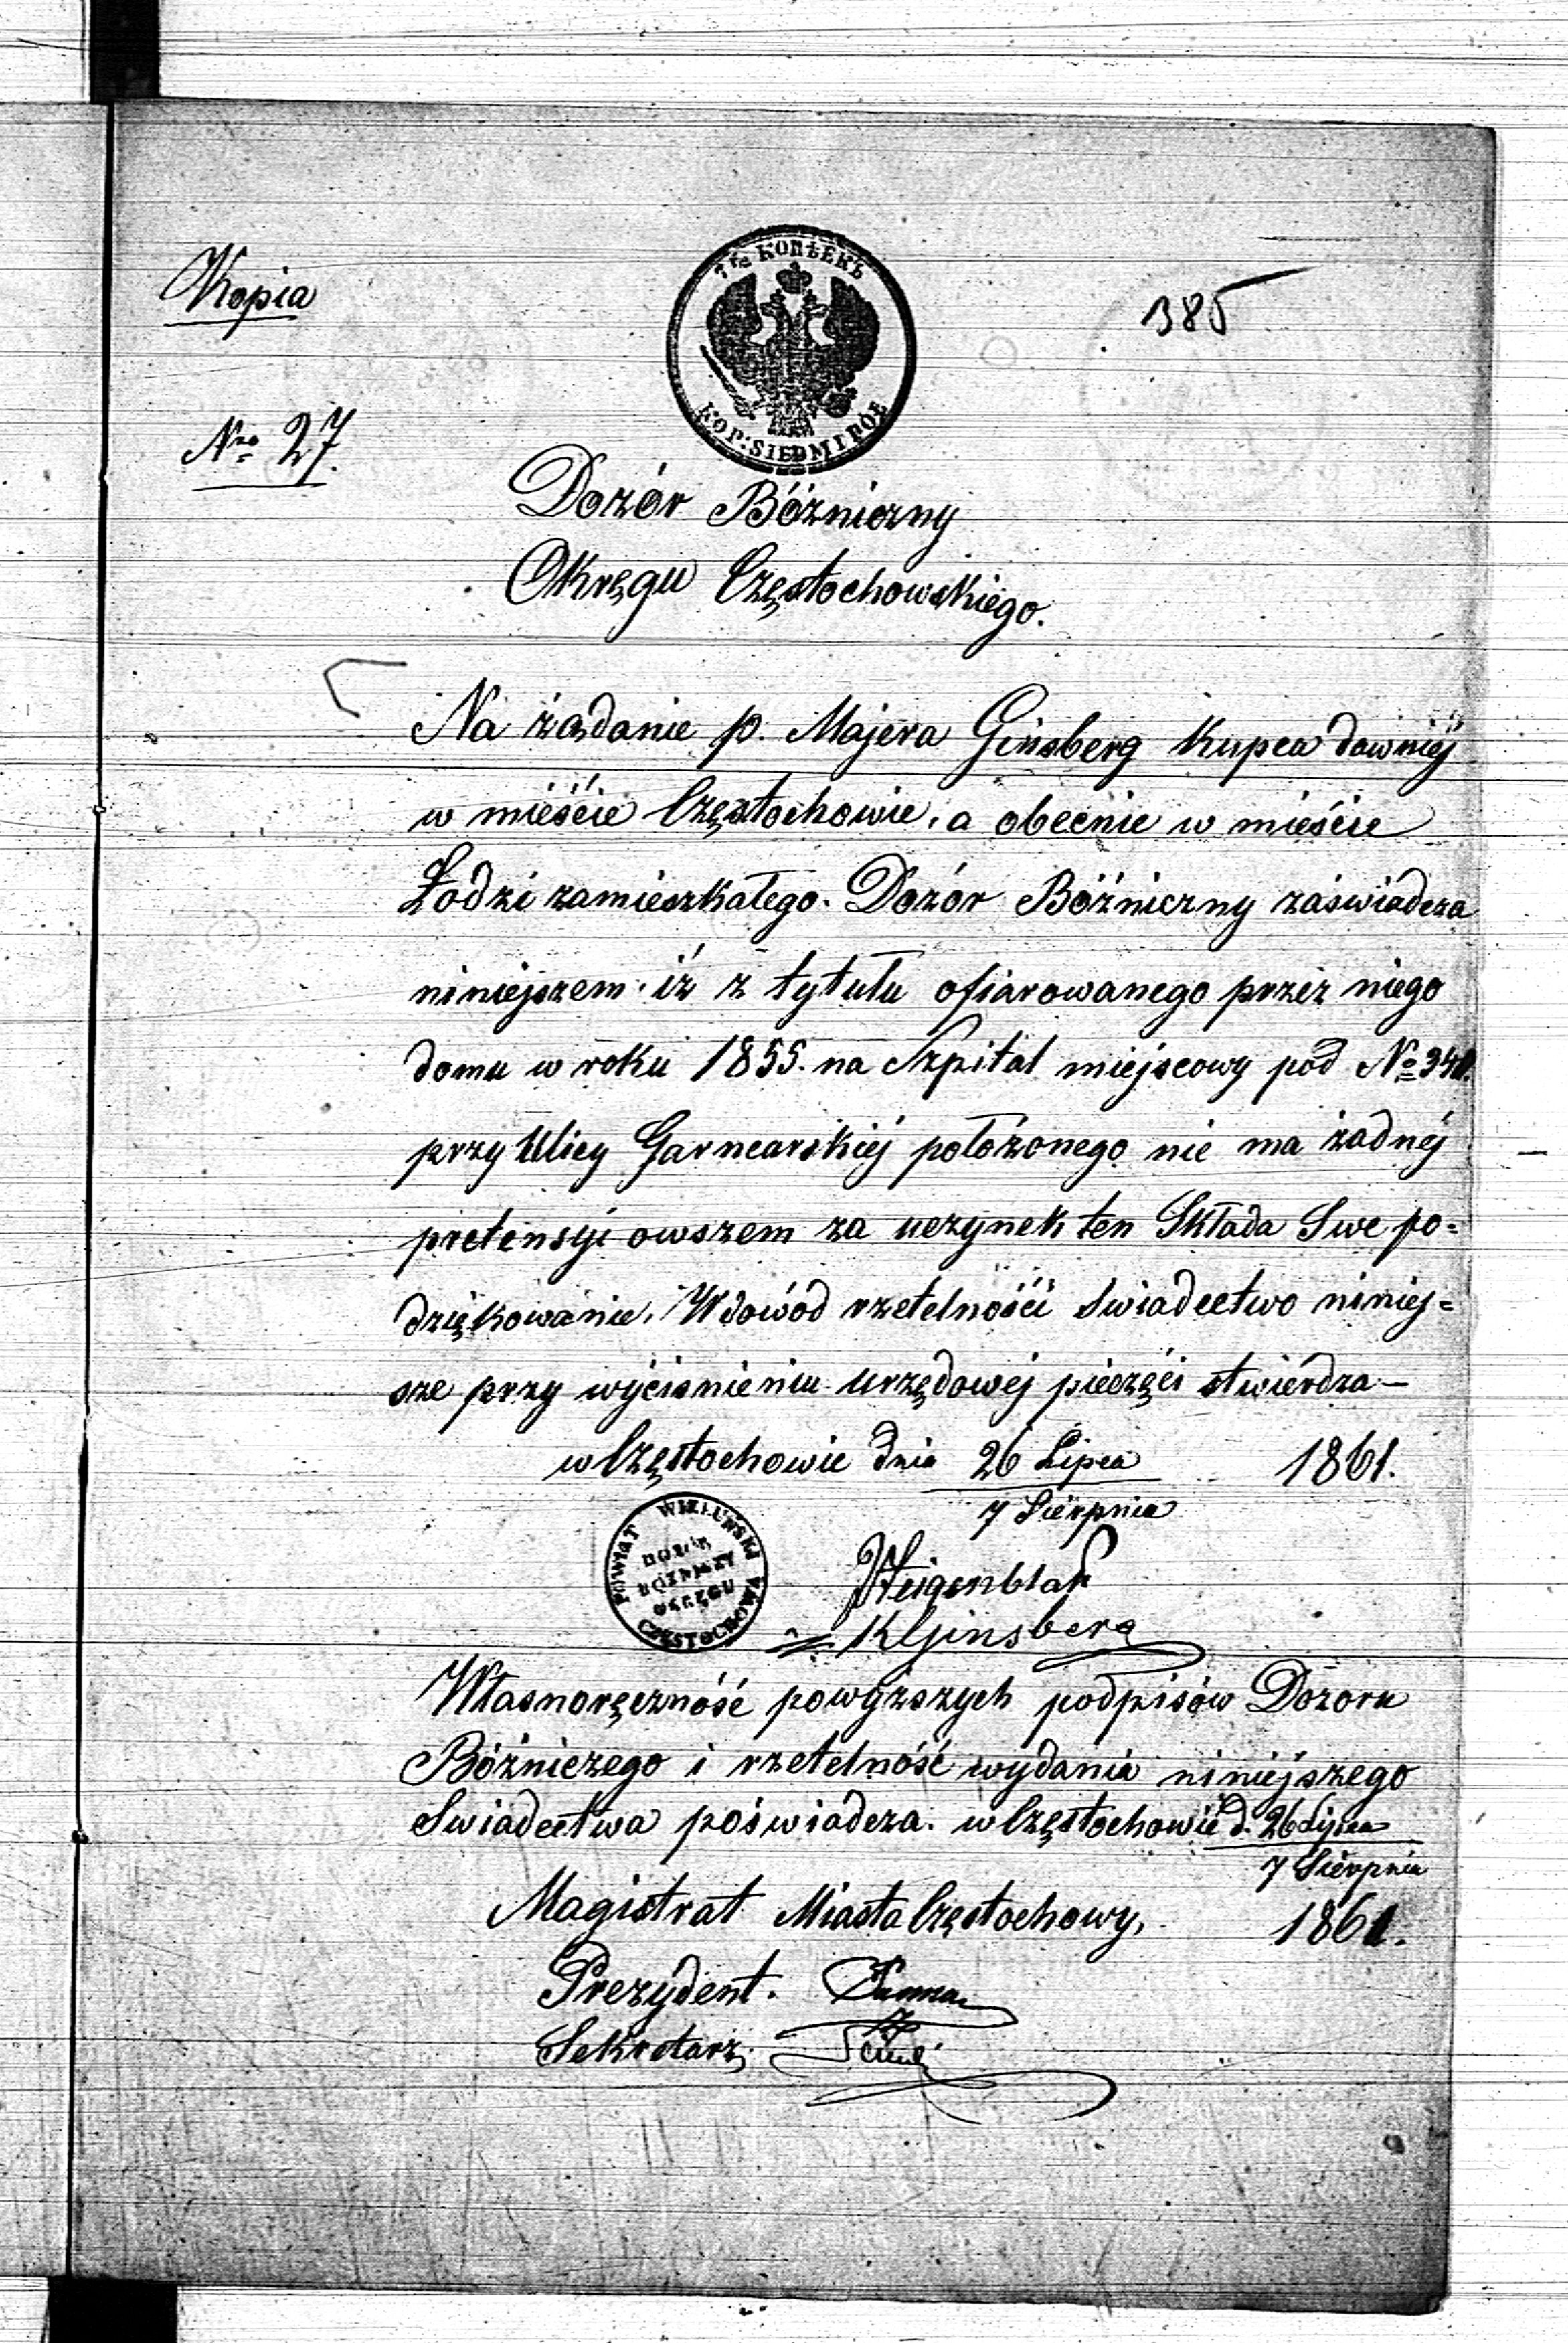 Kopia
7½ КОПѢЕКЪ
KOP: SIEDM I PÓŁ
385
Nro 27.
Dozór Bóżniczny
Okręgu Częstochowskiego.
Na żądanie p. Majera Ginsberg Kupca dawniéj
w mieście Częstochowie, a obecnie w mieście
Łodzi zamieszkałego. Dozór Bóżniczny zaświadcza
niniejszem iż z tytułu ofiarowanego przez niego
domu w roku 1855. na Szpital miejscowy pod No
przy Ulicy Garncarskiéj położonego nie ma żadnéj
pretensyi owszem za uczynek ten Składa Swe po=
dziękowanie. W dowód rzetelności świadectwo niniej=
sze przy wyciśnieniu urzędowéj pieczęci stwierdza –
w Częstochowie dnia 26 Lipca 1861.
7 Sierpnia
POWIAT WIELUŃSKI
DOZÓR
BÓŻNICZY
OKRĘGU
CZĘSTOCHOWA
KGinsberg
Własnoręczność powyższych podpisów Dozoru
Bóżniczego i rzetelność wydania niniejszego
Swiadectwa poświadcza. w Częstochowie d. 26 Lipca
7 Sierpnia
Magistrat Miasta Częstochowy, 1861.
Prezydent.
Sekretarz